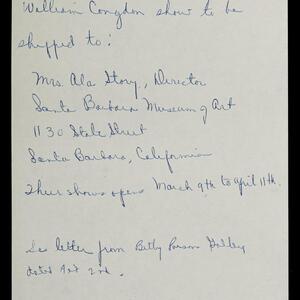 William Congdon show to be
shipped to:
Mrs. Ala Story, Director
Santa Barbara Museum of Art
1130 State Street
Santa Barbara, California
Their shows opens March 9th to April 11th.
See letter from Betty Parsons Gallery
dated 2nd.